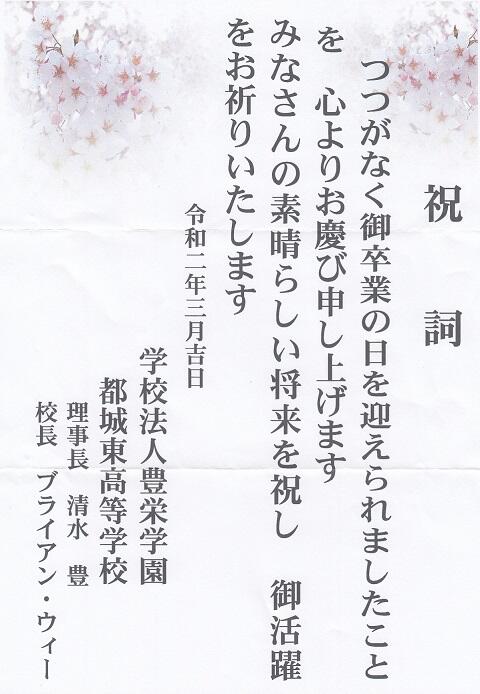 祝 詞
つつがなく御卒業の日を迎えられましたこと
を 心よりお慶び申し上げます
みなさんの素晴らしい将来を祝し 御活躍
をお祈りいたします
令和二年三月吉日
学校法人豊栄学園
都城東高等学校
理事長 清水 豊
校長 ブライアン・ウィー